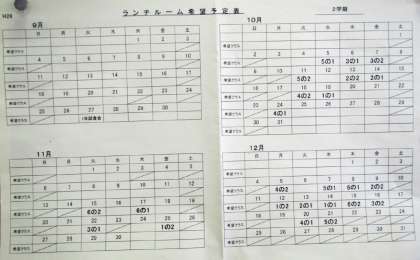 H28
ランチルーム希望予定表
2学期
9月
日 月 火 水 木 金 土
1 2 3
希望クラス
4 5 6 7 8 9 10
希望クラス
11 12 13 14 15 16 17
希望クラス
18 19 20 21 22 23 24
希望クラス
25 26 27 28 29 30
希望クラス
10月
日 月 火 水 木 金 土
1
希望クラス
2 3 4 5 6 7 8
希望クラス 5の1 3の1 3の2
9 10 11 12 13 14 15
希望クラス 5の2 2の2 2の1
16 17 18 19 20 21 22
希望クラス 4の2 1の1
23 24 25 26 27 28 29
希望クラス 4の1
30 31
11月
日 月 火 水 木 金 土
1 2 3 4 5
希望クラス
6 7 8 9 10 11 12
希望クラス
13 14 15 16 17 18 19
希望クラス 6の2 6の1
20 21 22 23 24 25 26
希望クラス 3の1 1の2
27 28 29 30
12月
日 月 火 水 木 金 土
1 2 3
希望クラス
4 5 6 7 8 9 10
希望クラス 4の2 5の1
11 12 13 14 15 16 17
希望クラス 1の2 2の1 1の1 6の1 3の2
18 19 20 21 22 23 24
希望クラス 4の1 5の2
25 26 27 28 29 30 31